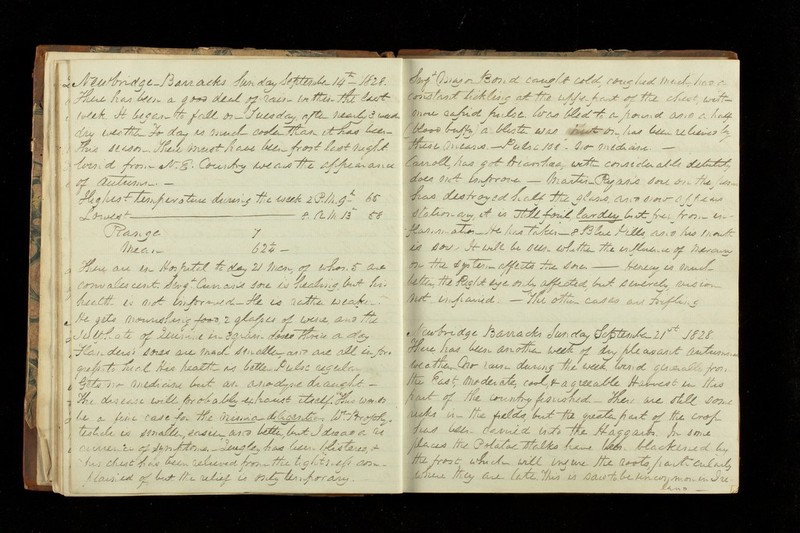 Newbridge Barracks Sunday September 14th 1828.
There has been a good deal of rain within the last
week. It began to fall on Tuesday, after nearly 3 weeks
dry weather. To day is much cooler than it has been
this season. There must have been frost last night
Wind from N.E. Country wears the appearance
of Autumn. —
Highest temperature during the week 2 P.M. 9th 65
Lowest 8 A.M. 13 58
Range 7
Mean 62 —
There are in Hospital to day 21 men, of whom 5 are
convalescent. Sergt sore is healing, but his
health is not improved. He is rather weaker.
He gets nourishing food, 2 glasses of wine, and the
Sulphate of Quinine in 3 grain doses thrice a day
Flanders sores are much smaller and are all in pro-
gress to heal. His health is better. Pulse regular
Gets no medicine but an anodyne draught —
The disease will probably exhaust itself. This would
be a fine case for the Wm
testicle is smaller, easier, and better, but I dread a re
currence of symptoms. has been blistered, &
his chest has been relieved from the tightness com-
plained of but the relief is only temporary.
Sergt Major Bond caught cold, coughed much, has a
constant tickling at the upper part of the chest, with
more rapid pulse. Was bled to a pound and a half
(blood buffy) a blister was put on, has been relieved by
these means. Pulse 108. No medicine. —
Carroll has got Diarrhoea, with considerable debility
does not improve — Martin Ryan's sore on the
has destroyed half the glans, and now appears
stationary, it is still foul but free from in-
flammation. He has taken 8 Blue Pills and his mouth
is sore. It will be seen whether the influence of mercury
on the system affects the sore — is much
better, the Right eye only affected but severely, vision
not impaired. — The other cases are trifling

Newbridge Barracks Sunday September 21st 1828
There has been another week of dry pleasant autumnal
weather. No rain during the week. Wind generally from
the East, moderate, cool, & agreeable. Harvest in this
part of the country finished. There are still some
ricks in the fields, but the greater part of the crop
had been carried into the Haggards. In some
places the Potatoe stalks have been blackened by
the frost, which will injure the roots, particularly
where they are late. This is said to be uncommon in Ire
land —